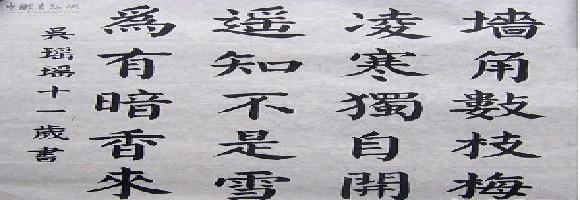 墻角數枝梅
凌寒獨自開
遥知不是雪
爲有暗香來
吴瑶瑶十一歲書